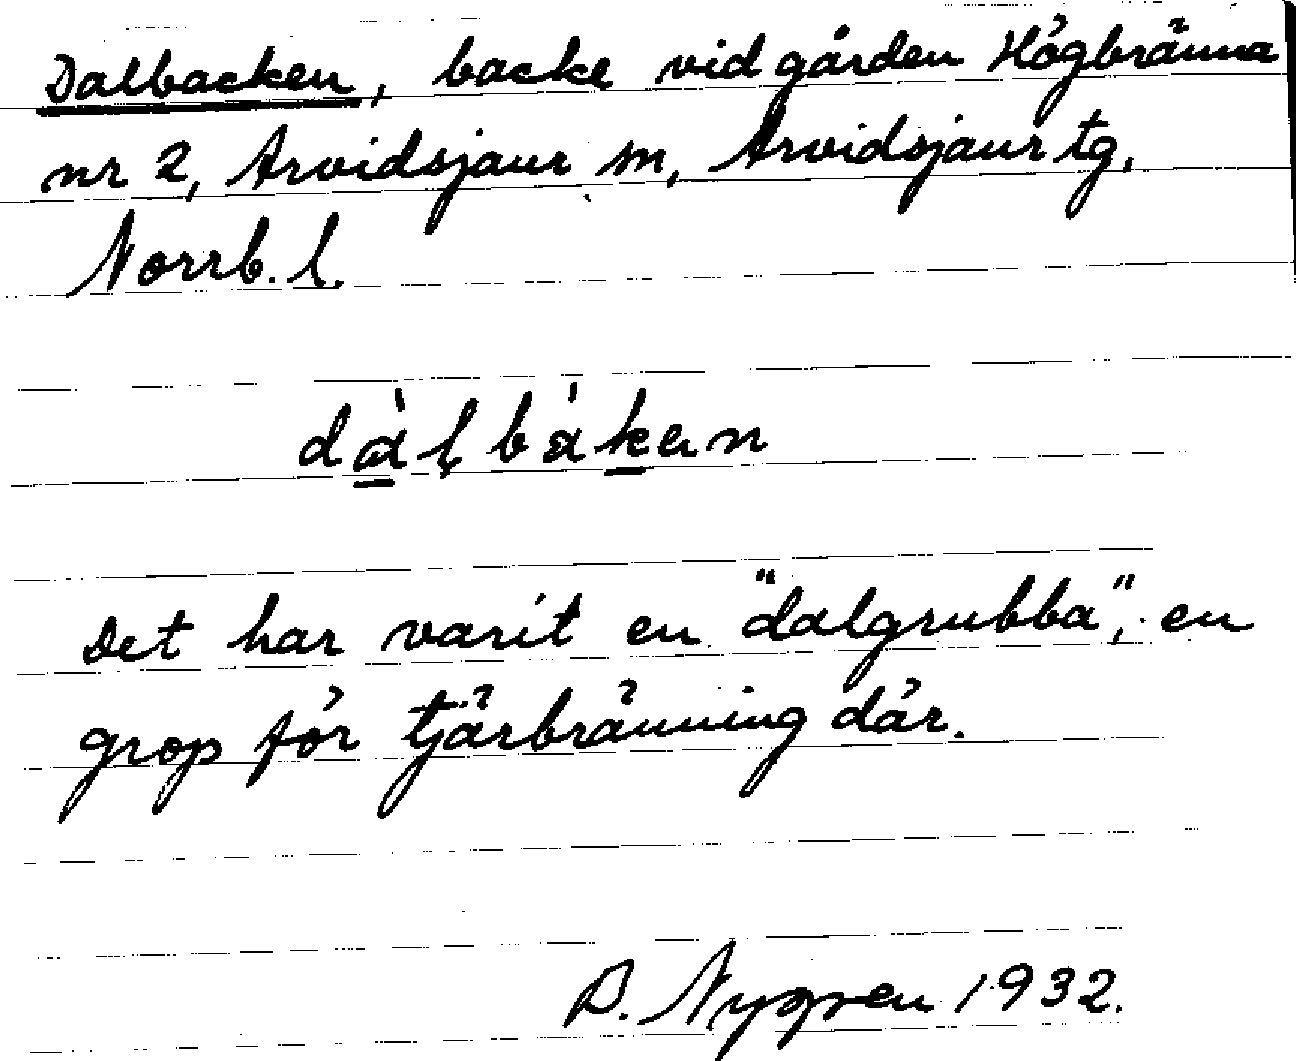 Dalbacken, backe vid gården Högbränna
nr 2, Arvidsjaur sn, Arvidsjaur tg,
Norrb. l.
dàlbákan
Det har varit en "dalgrubba", en
grop för tjärbränning där.
B. Nygren 1932.